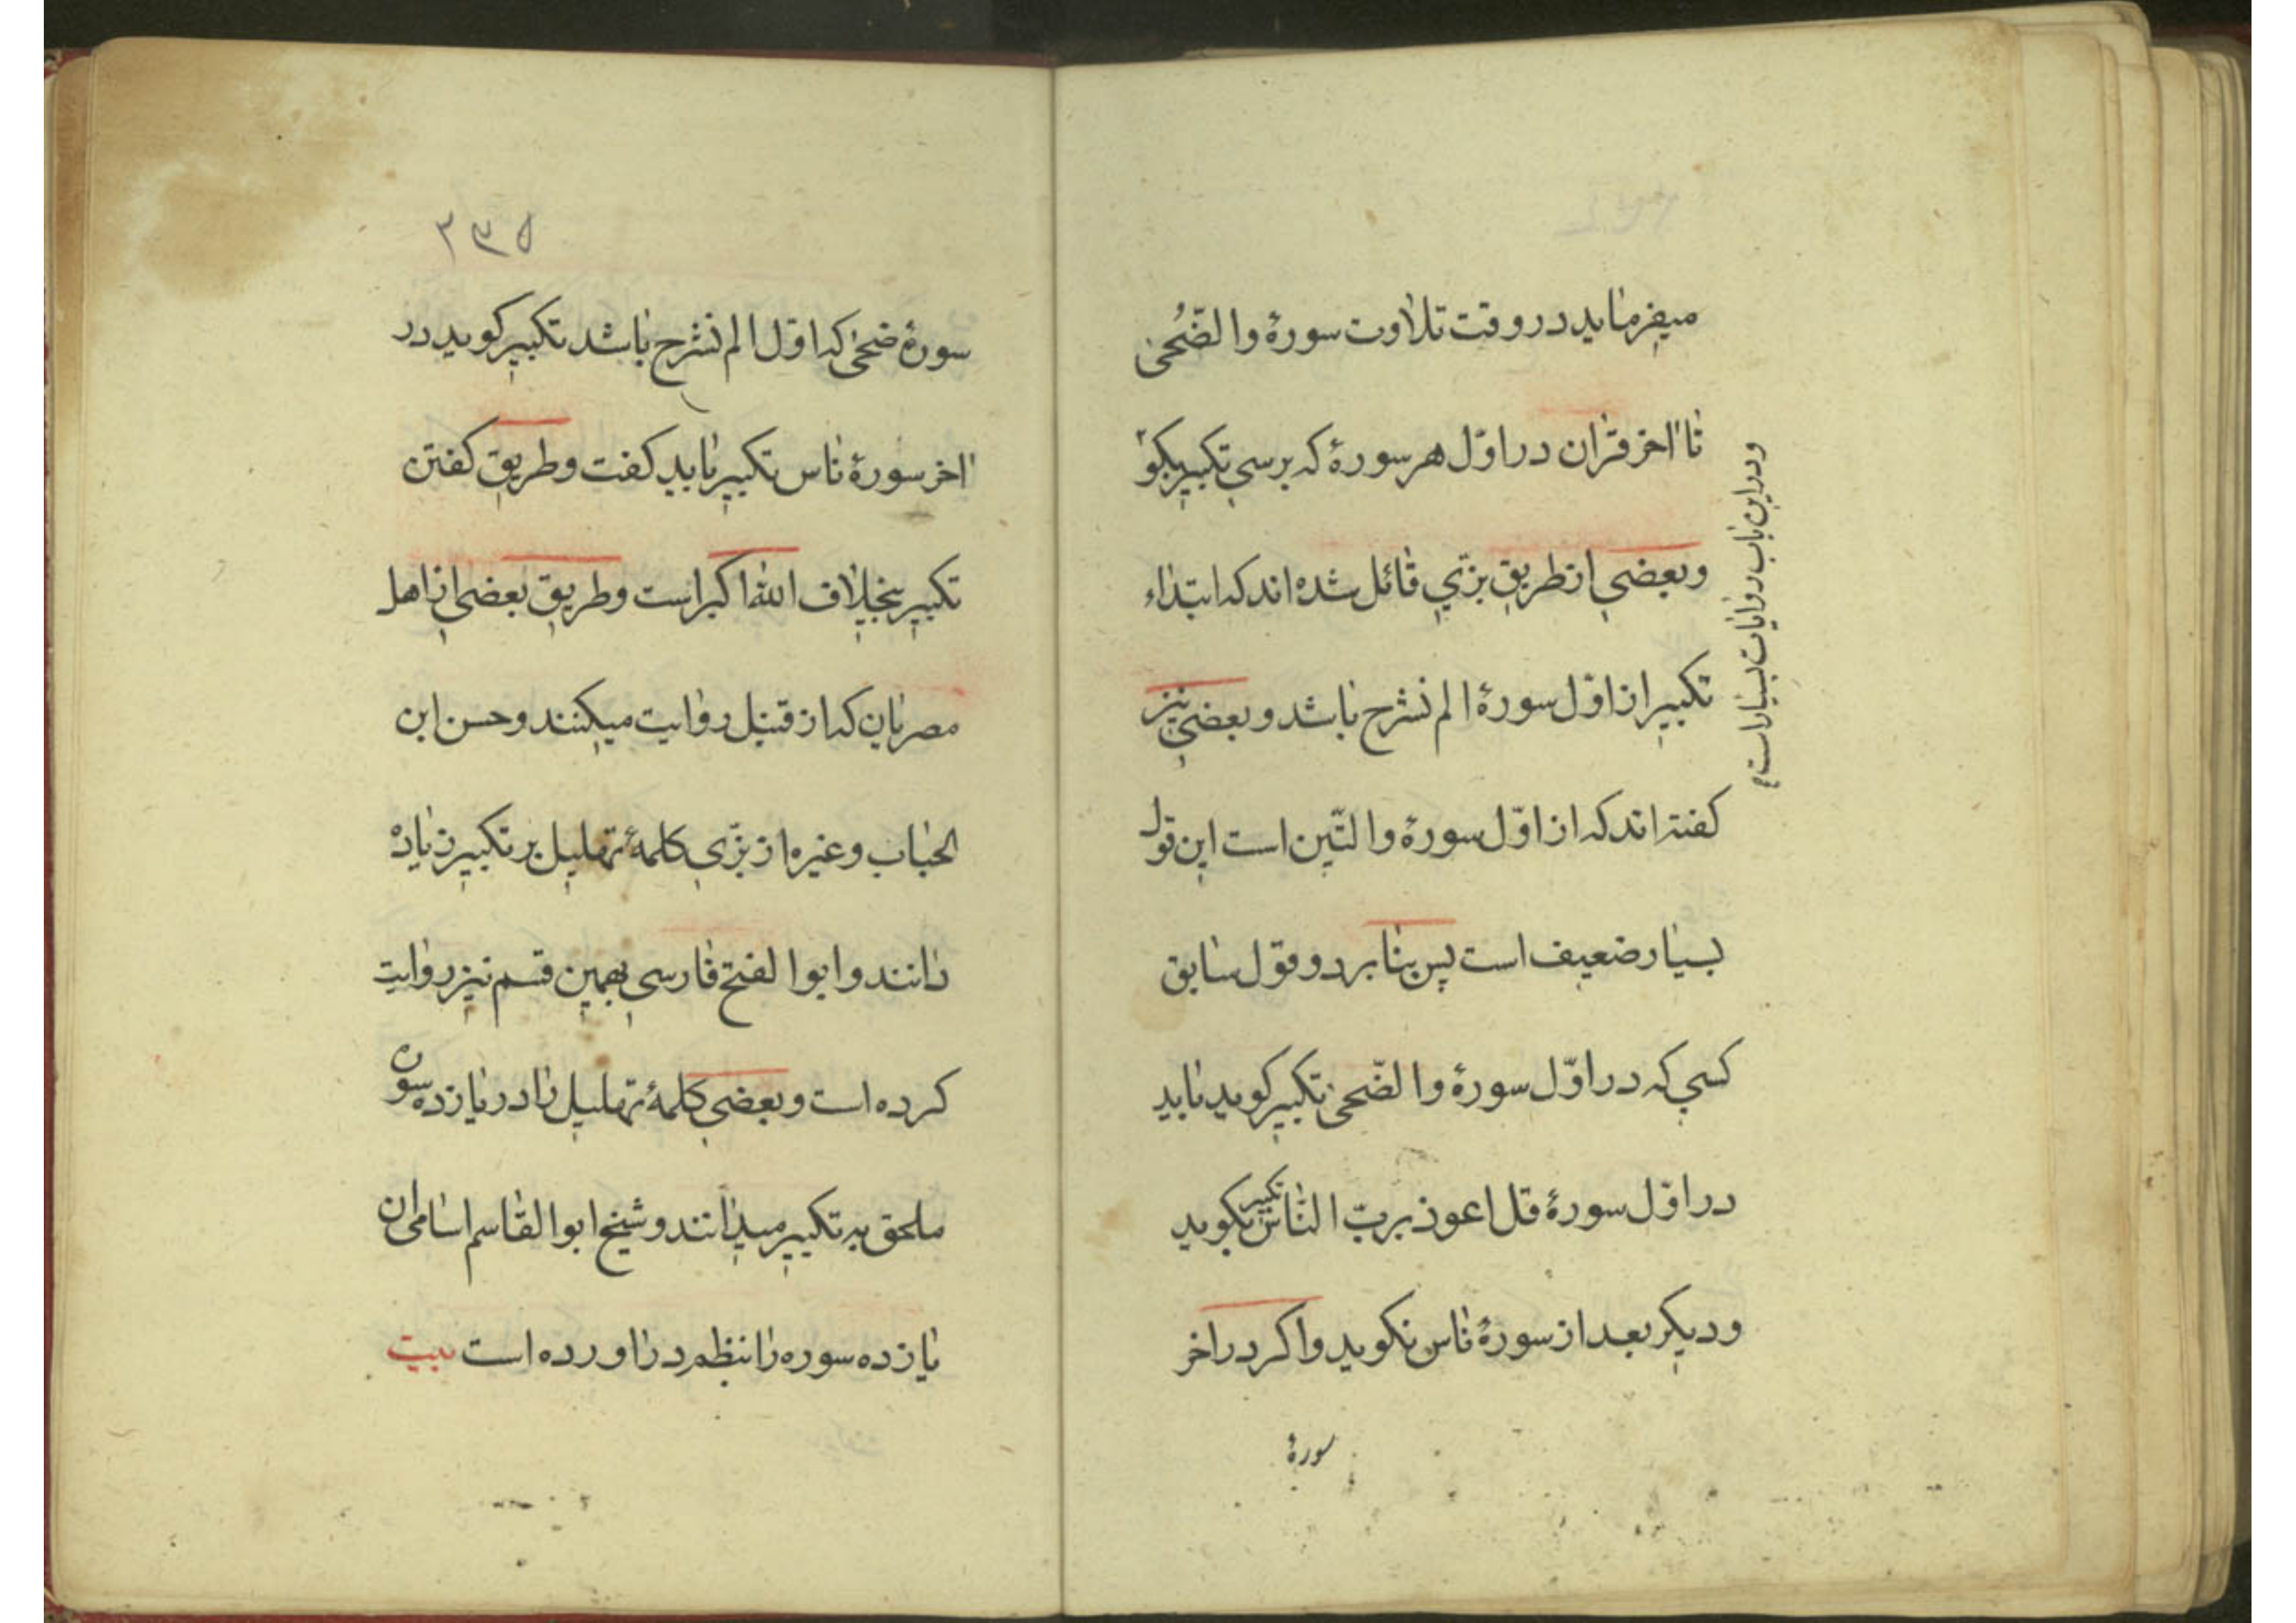 میفرماید در وقت تلاوت سورهٔ والضُّحی
تا اخر قران در اوّل هر سورهٔ که برسی تکبیر بکو
وبعضی از طریق بزّی قائل شده اند که ابتداء
تکبیر از اوّل سورهٔ الم نشرح باشد و بعضی نیز
کفته اند که از اوّل سورهٔ والتّین است این قول
بسیار ضعیف است پس بنابر دو قول سابق
کسی که در اوّل سورهٔ والضّحی تکبیر کوید باید
در اوّل سورهٔ قل اعوذ بربّ النّاس تکبیر بکوید
ودیکر بعد از سورهٔ ناس نکوید واکر در اخر
سورهٔ
ودر این باب روایات بسیار است
۲۳۵
سورهٔ ضحی که اوّل الم نشرح باشد تکبیر کوید در
اخر سورهٔ ناس تکبیر باید کفت وطریق کفتن
تکبیر بخلاف الله اکبر است وطریق بعضی از اهل
مصریان که از قنبل روایت میکنند وحسن ابن
الحباب وغیره از بزّی کلمهٔ تهلیل بر تکبیر زیاده
دانند وابوالفتح فارسی بهمین قسم نیز روایت
کرده است وبعضی کلمهٔ تهلیل را در یازده سوره
ملحق به تکبیر میدانند وشیخ ابوالقاسم اسامی ان
یازده سوره را بنظم در اورده است بیت